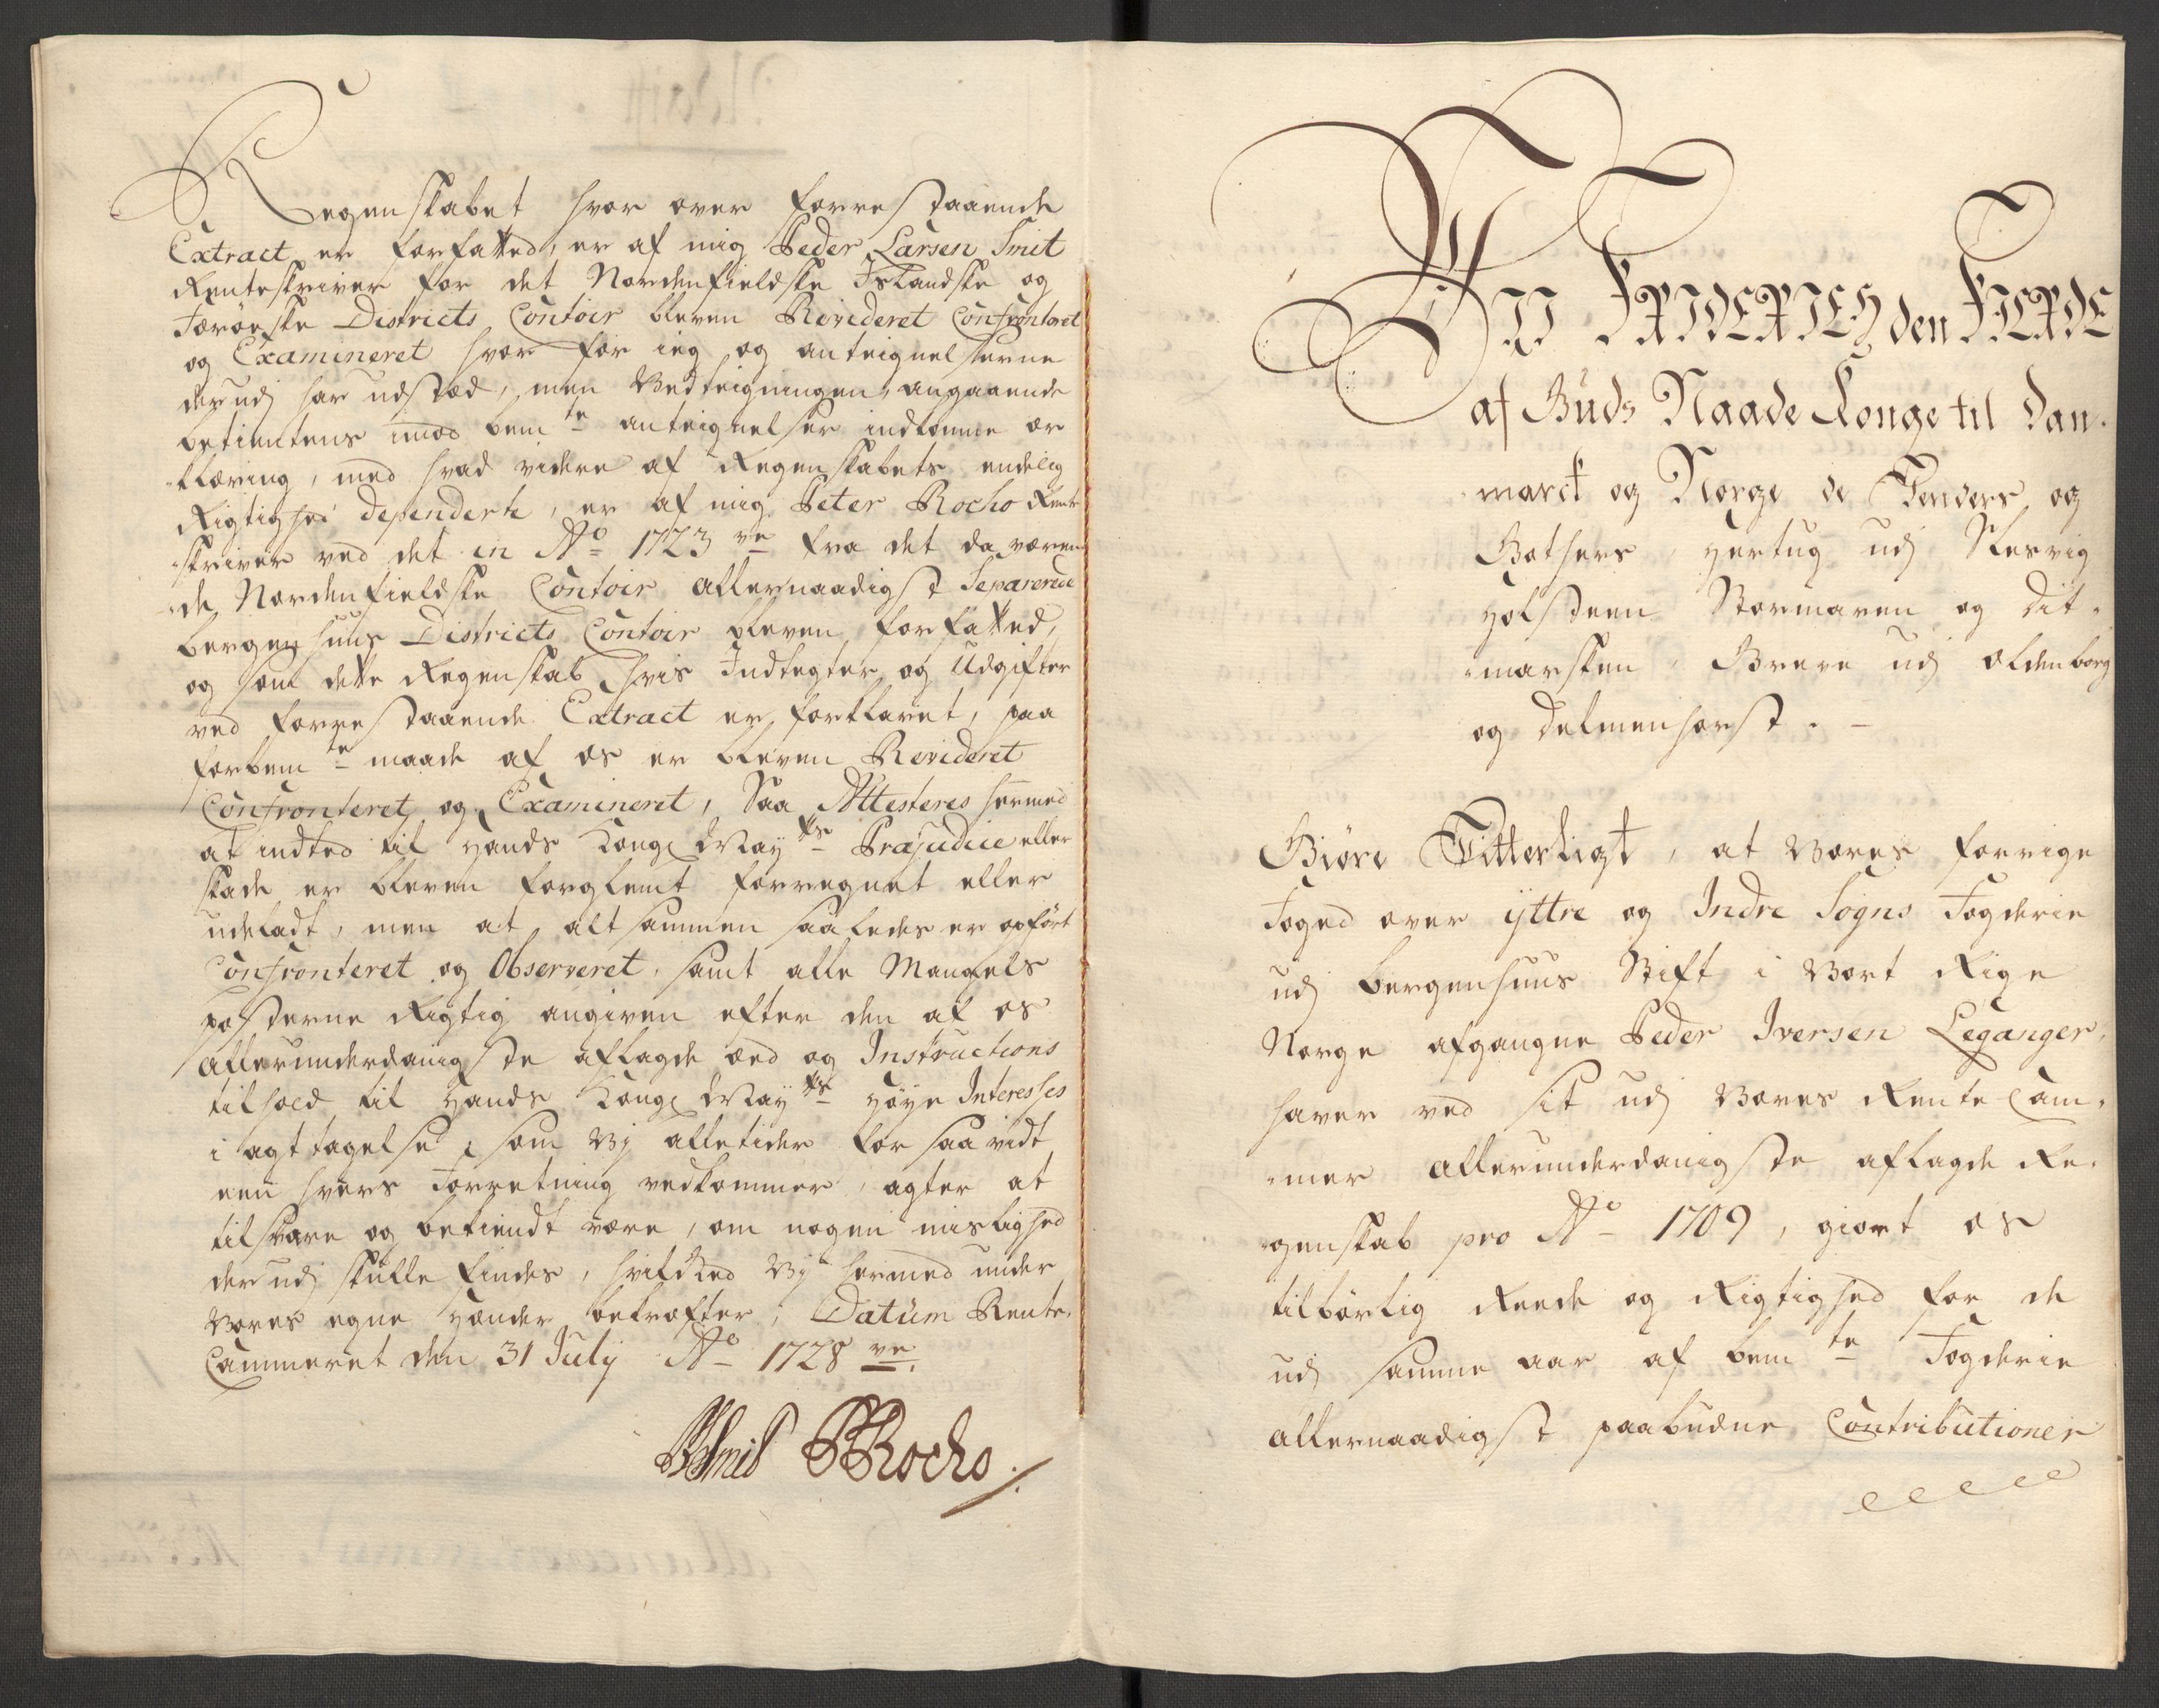 Regenskabet hvor over forrestaaende
Extract er forfatted, er af mig Peder Larsen Smit
Renteskriver for det Nordenfieldske Islandske og
Færöeske Districts Contoir bleven Revideret Confronteret
og Examineret hvor for ieg og anteignelserne
der udj har udstæd, men Vedteigningen, angaaende
betientens imod bem.te anteignelser indkomne er
klæring, med hvad videre af Regenskabets endelig
Rigtighed dependerte, er af mig Peter Rocho Rente
skriver ved det in A.o 1723 ve fra det da væren
de Nordenfieldske Contoir allernaadigst Separerede
bergenhuus Districts Contoir bleven forfatted,
og som dette Regenskab hvis Indtegter og Udgifter
ved forrestaaende Extract er forklaret, paa
forbem.te maade af os er bleven Revideret
Confronteret og Examineret, Saa Attesteres hermed
at indted til Hands Kongl May.ts Præjudice eller
skade er bleven forglemt forregnet eller
udeladt, men at alt sammen saaledes er opfört
Confronteret og Observeret, samt alle Mangels
posterne Rigtig angiven efter den af os
allerunderdanigste aflagde æed og Instructions
tilhold til Hands Kongl May.ts Höye Interesses
i agttagelse, som Vy alletider for saavidt
een hvers Forretning vedkommer, agter at
tilsvare og bekiendt være, om nogen mislighed
der udj skulle findes, hvilked Vy hermed under
Vores egne Hænder bekræfter, Datum Rente
Cammeret den 31 July A.o 1728 ve.
PLSmit PRocho.
WJ FRIDERICH den FIERDE
af Guds Naade Konge til Dan
marck og Norge de Venders og
Gothers, Hertug udj Slesvig
Holsteen Stormaren og Dit
marsken, Greve udj Oldenborg
og Delmenhorst. –
Giöre Vitterligt, at Vores forrige
Foged over yttre og Indre Sogns Fogderie
udj bergenhuus Stift i Vort Rige
Norge afgangne Peder Iversen Leganger,
haver ved sit udj Vores Rente Cam
mer allerunderdanigste aflagde Re
genskab pro A.o 1709, giort os
tilbörlig Reede og Rigtighed for de
udj samme aar af bem.te Fogderie
allernaadigst paabudne Contributioner